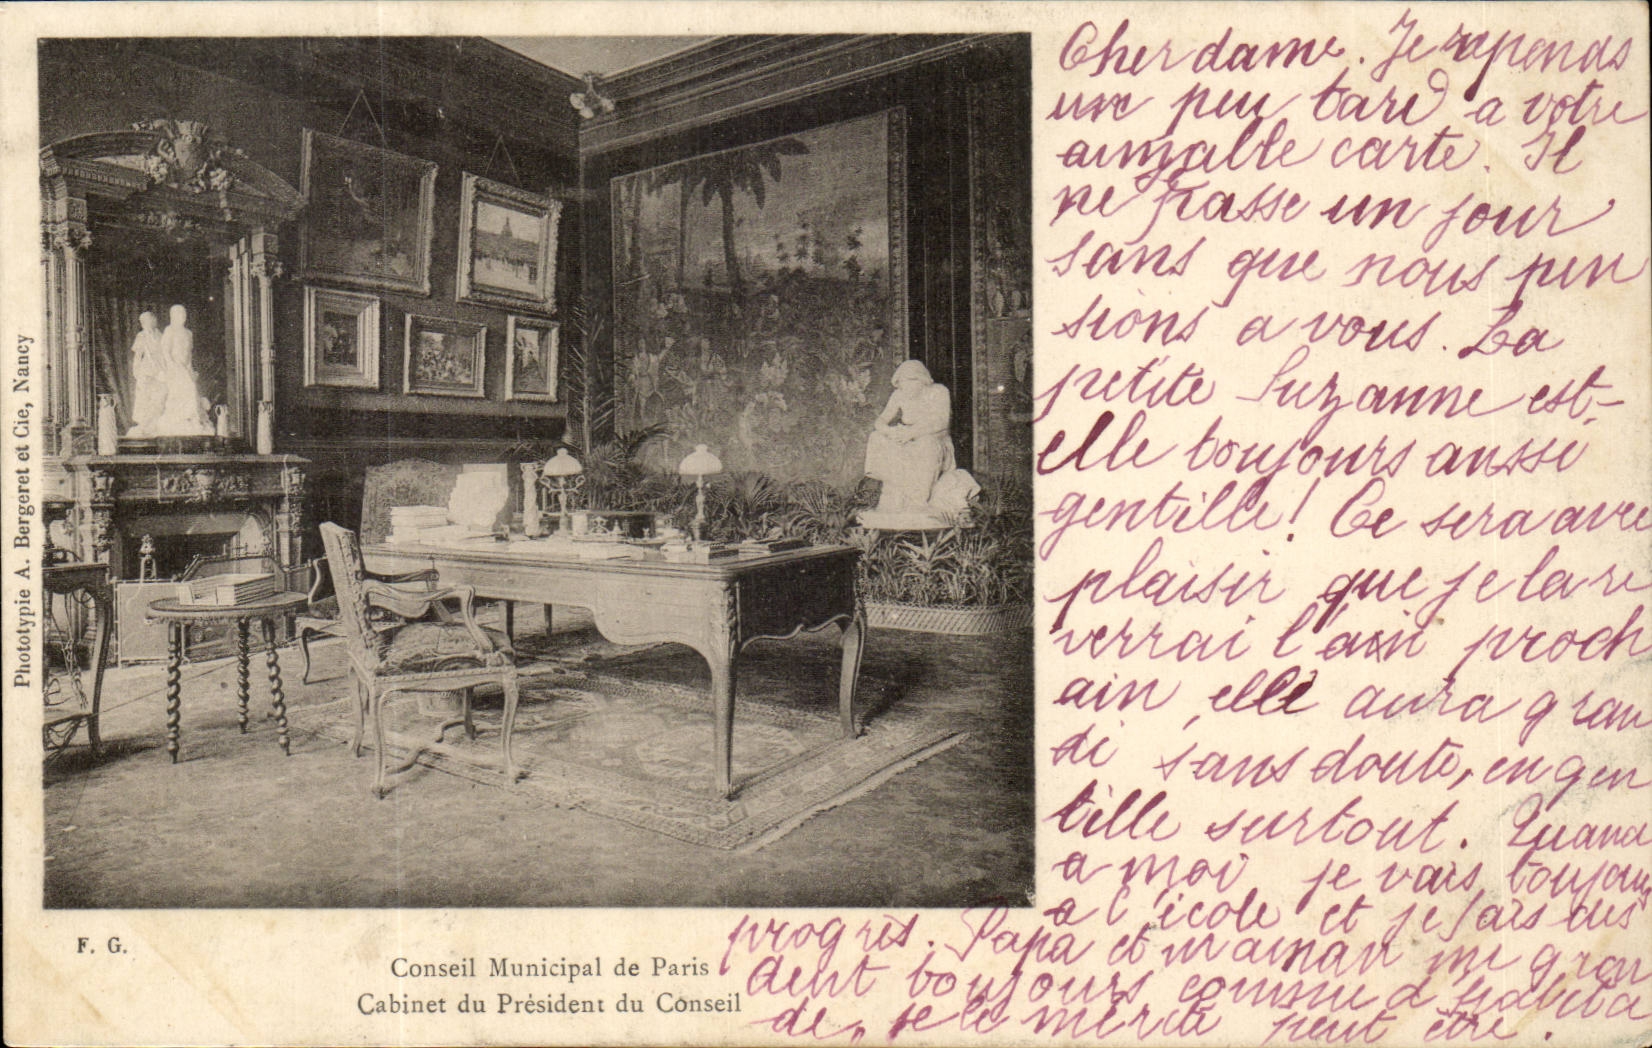 Cher dame. Je repends
un peu tard a votre
aimable carte. Il
ne passe un jour
sans que nous pen
sions a vous. La
petite Suzanne est-
elle toujours aussi
gentille! Ce sera avec
plaisir que je la re
verrai l'an proch
ain, elle aura gran
di sans doute, en gen
tille surtout. Quand
a moi je vais toujours
a l'école et je fais des
progrès. Papa et maman me gron
dent toujours comme d'habitu
de, je le mérite peut être.
Phototypie A. Bergeret et Cie, Nancy
F. G.
Conseil Municipal de Paris
Cabinet du Président du Conseil